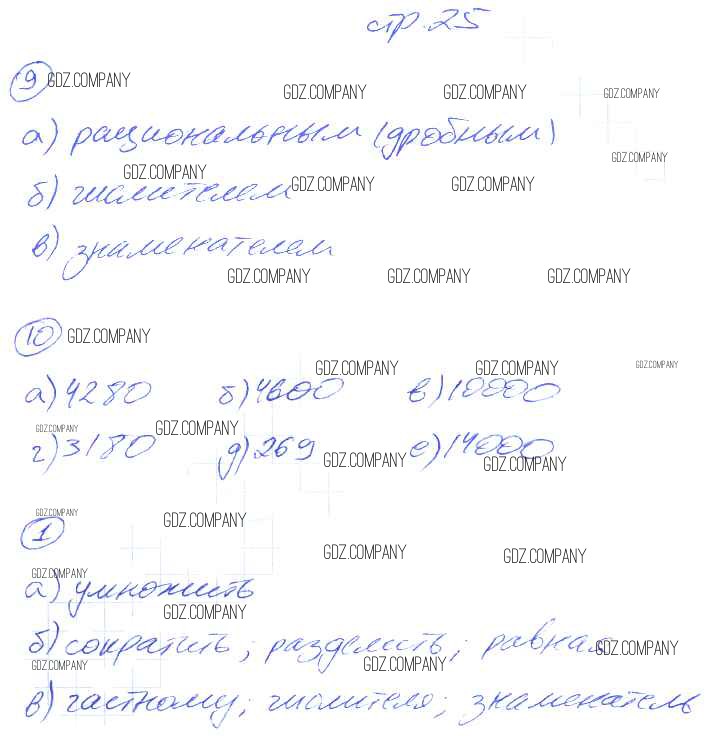 стр. 25
9 GDZ.COMPANY
GDZ.COMPANY GDZ.COMPANY GDZ.COMPANY
а) рациональным (дробным)
GDZ.COMPANY
GDZ.COMPANY
б) числителем GDZ.COMPANY GDZ.COMPANY
в) знаменателем
GDZ.COMPANY GDZ.COMPANY GDZ.COMPANY
10 GDZ.COMPANY
GDZ.COMPANY GDZ.COMPANY GDZ.COMPANY
а) 4280 б) 4600 в) 10000
GDZ.COMPANY GDZ.COMPANY
г) 3180 д) 269 е) 14000
GDZ.COMPANY GDZ.COMPANY
GDZ.COMPANY GDZ.COMPANY
1
GDZ.COMPANY GDZ.COMPANY
GDZ.COMPANY
а) умножить
GDZ.COMPANY
б) сократить; разделить; равная GDZ.COMPANY
GDZ.COMPANY GDZ.COMPANY
в) частному; числителя; знаменатель